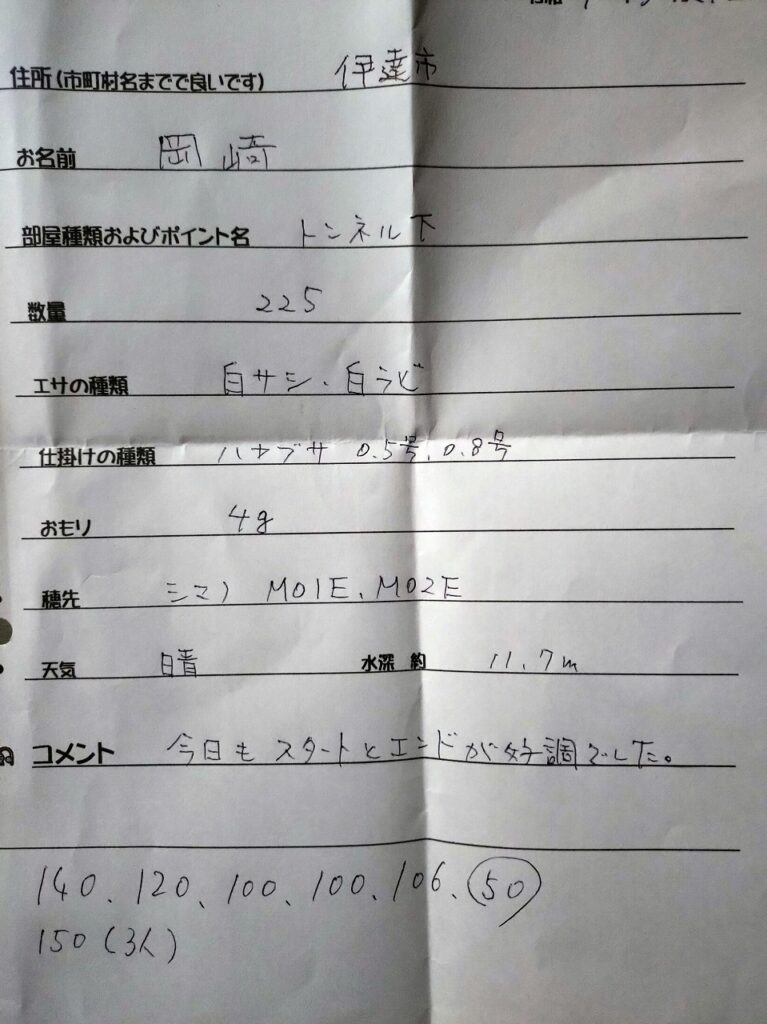 住所(市町村名までで良いです) 伊達市
お名前 岡﨑
部屋種類およびポイント名 トンネル下
数量 225
エサの種類 白サシ・白ラビ
仕掛けの種類 ハヤブサ 0.5号、0.8号
おもり 4g
穂先 シマノ M01E、M02E
天気 晴 水深 約 11.7m
コメント 今日もスタートとエンドが好調でした。
140、120、100、100、106、50
150(3人)